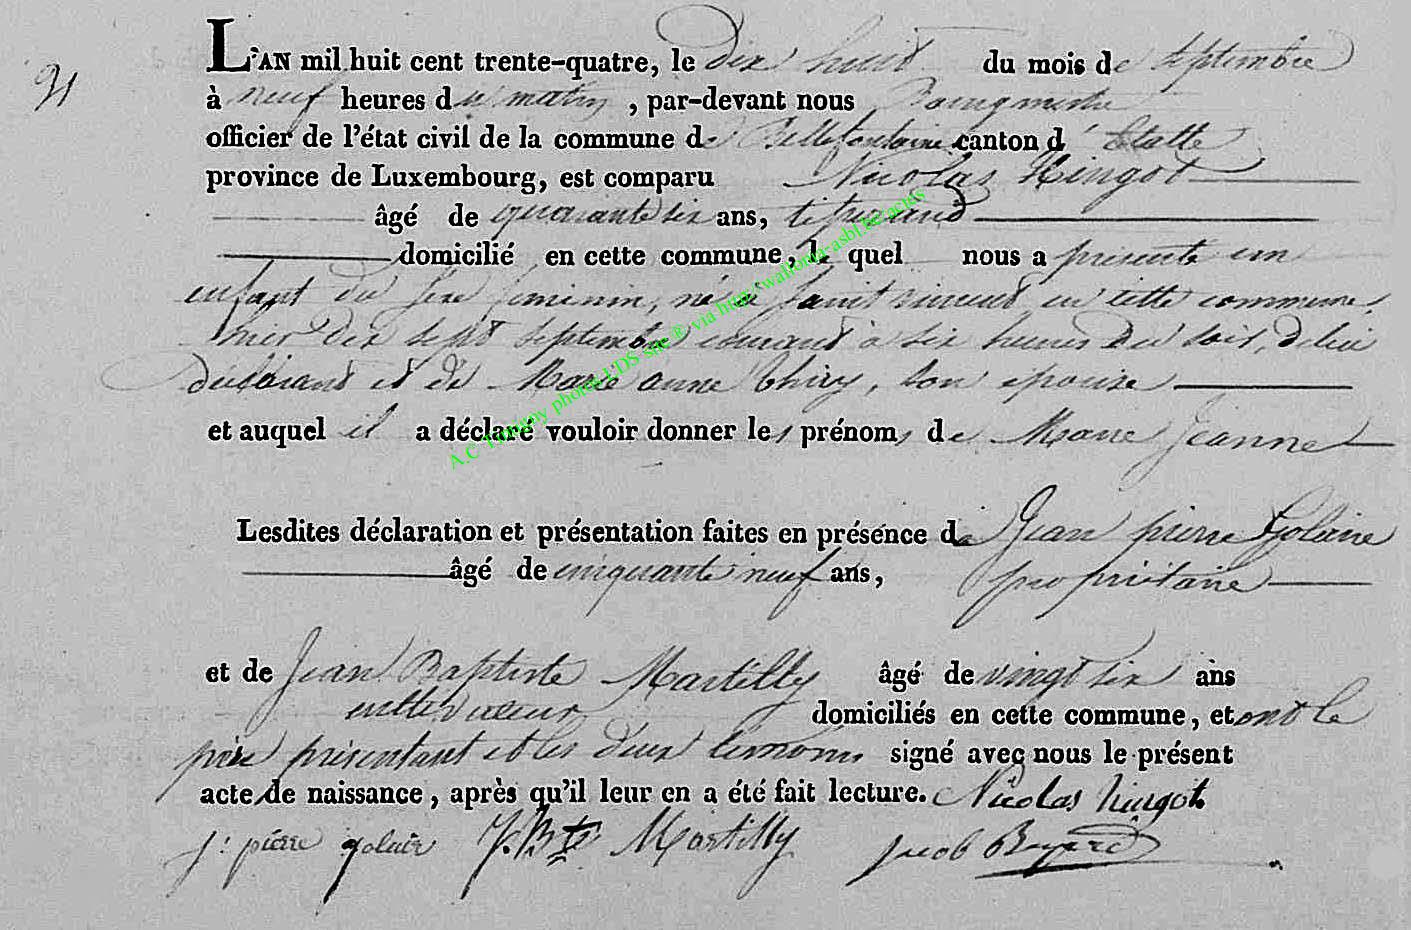 21
L'AN mil huit cent trente-quatre, le dix huit du mois de septembre
à neuf heures du matin, par-devant nous Bourgmestre
officier de l'état civil de la commune de Bellefontaine canton d'Etalle
province de Luxembourg, est comparu Nicolas Hingot
âgé de quarante six ans, tisserand
domicilié en cette commune, le quel nous a présenté un
enfant du sexe feminin, né à Saint Vincent en cette commune,
hier dix sept septembre courant à six heures du soir, de lui
déclarant et de Marie anne Thiry, son epouse
et auquel il a déclaré vouloir donner les prénoms de Marie Jeanne
Lesdites déclaration et présentation faites en présence de Jean pierre Golaire
âgé de cinquante neuf ans, propriétaire
et de Jean Baptiste Martilly âgé de vingt six ans
cultivateur domiciliés en cette commune, et ont le
père présentant et les deux temoins signé avec nous le présent
acte de naissance, après qu'il leur en a été fait lecture. Nicolas hingot
j: pierre golair J. Bte Martilly jacob
A.C Tintigny photos LDS site ® via http://wallonia-asbl.be/actes